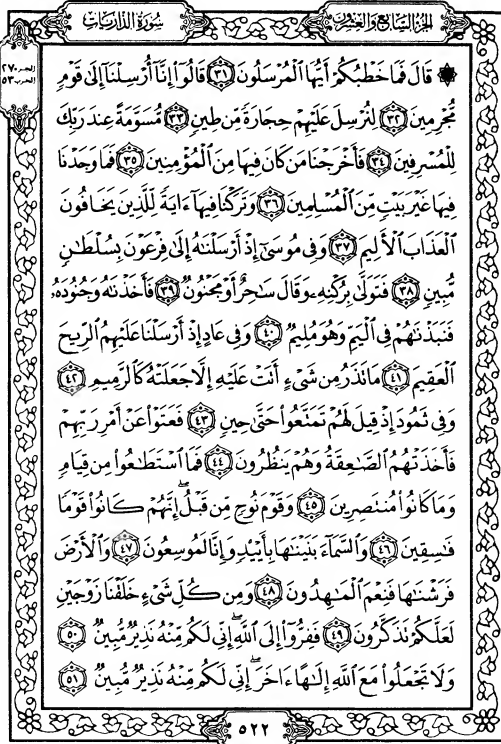 الجزء السابع والعشرون
سورة الذاريات
الحزب ٥٣
۞ قَالَ فَمَا خَطْبُكُمْ أَيُّهَا ٱلْمُرْسَلُونَ ٣١ قَالُوٓا۟ إِنَّآ أُرْسِلْنَآ إِلَىٰ قَوْمٍ
مُّجْرِمِينَ ٣٢ لِنُرْسِلَ عَلَيْهِمْ حِجَارَةً مِّن طِينٍ ٣٣ مُّسَوَّمَةً عِندَ رَبِّكَ
لِلْمُسْرِفِينَ ٣٤ فَأَخْرَجْنَا مَن كَانَ فِيهَا مِنَ ٱلْمُؤْمِنِينَ ٣٥ فَمَا وَجَدْنَا
فِيهَا غَيْرَ بَيْتٍ مِّنَ ٱلْمُسْلِمِينَ ٣٦ وَتَرَكْنَا فِيهَآ ءَايَةً لِّلَّذِينَ يَخَافُونَ
ٱلْعَذَابَ ٱلْأَلِيمَ ٣٧ وَفِى مُوسَىٰٓ إِذْ أَرْسَلْنَٰهُ إِلَىٰ فِرْعَوْنَ بِسُلْطَٰنٍ
مُّبِينٍ ٣٨ فَتَوَلَّىٰ بِرُكْنِهِۦ وَقَالَ سَٰحِرٌ أَوْ مَجْنُونٌ ٣٩ فَأَخَذْنَٰهُ وَجُنُودَهُۥ
فَنَبَذْنَٰهُمْ فِى ٱلْيَمِّ وَهُوَ مُلِيمٌ ٤٠ وَفِى عَادٍ إِذْ أَرْسَلْنَا عَلَيْهِمُ ٱلرِّيحَ
ٱلْعَقِيمَ ٤١ مَا تَذَرُ مِن شَىْءٍ أَتَتْ عَلَيْهِ إِلَّا جَعَلَتْهُ كَٱلرَّمِيمِ ٤٢
وَفِى ثَمُودَ إِذْ قِيلَ لَهُمْ تَمَتَّعُوا۟ حَتَّىٰ حِينٍ ٤٣ فَعَتَوْا۟ عَنْ أَمْرِ رَبِّهِمْ
فَأَخَذَتْهُمُ ٱلصَّٰعِقَةُ وَهُمْ يَنظُرُونَ ٤٤ فَمَا ٱسْتَطَٰعُوا۟ مِن قِيَامٍ
وَمَا كَانُوا۟ مُنتَصِرِينَ ٤٥ وَقَوْمَ نُوحٍ مِّن قَبْلُ ۖ إِنَّهُمْ كَانُوا۟ قَوْمًا
فَٰسِقِينَ ٤٦ وَٱلسَّمَآءَ بَنَيْنَٰهَا بِأَيْي۟دٍ وَإِنَّا لَمُوسِعُونَ ٤٧ وَٱلْأَرْضَ
فَرَشْنَٰهَا فَنِعْمَ ٱلْمَٰهِدُونَ ٤٨ وَمِن كُلِّ شَىْءٍ خَلَقْنَا زَوْجَيْنِ
لَعَلَّكُمْ تَذَكَّرُونَ ٤٩ فَفِرُّوٓا۟ إِلَى ٱللَّهِ ۖ إِنِّى لَكُم مِّنْهُ نَذِيرٌ مُّبِينٌ ٥٠
وَلَا تَجْعَلُوا۟ مَعَ ٱللَّهِ إِلَٰهًا ءَاخَرَ ۖ إِنِّى لَكُم مِّنْهُ نَذِيرٌ مُّبِينٌ ٥١
٥٢٢